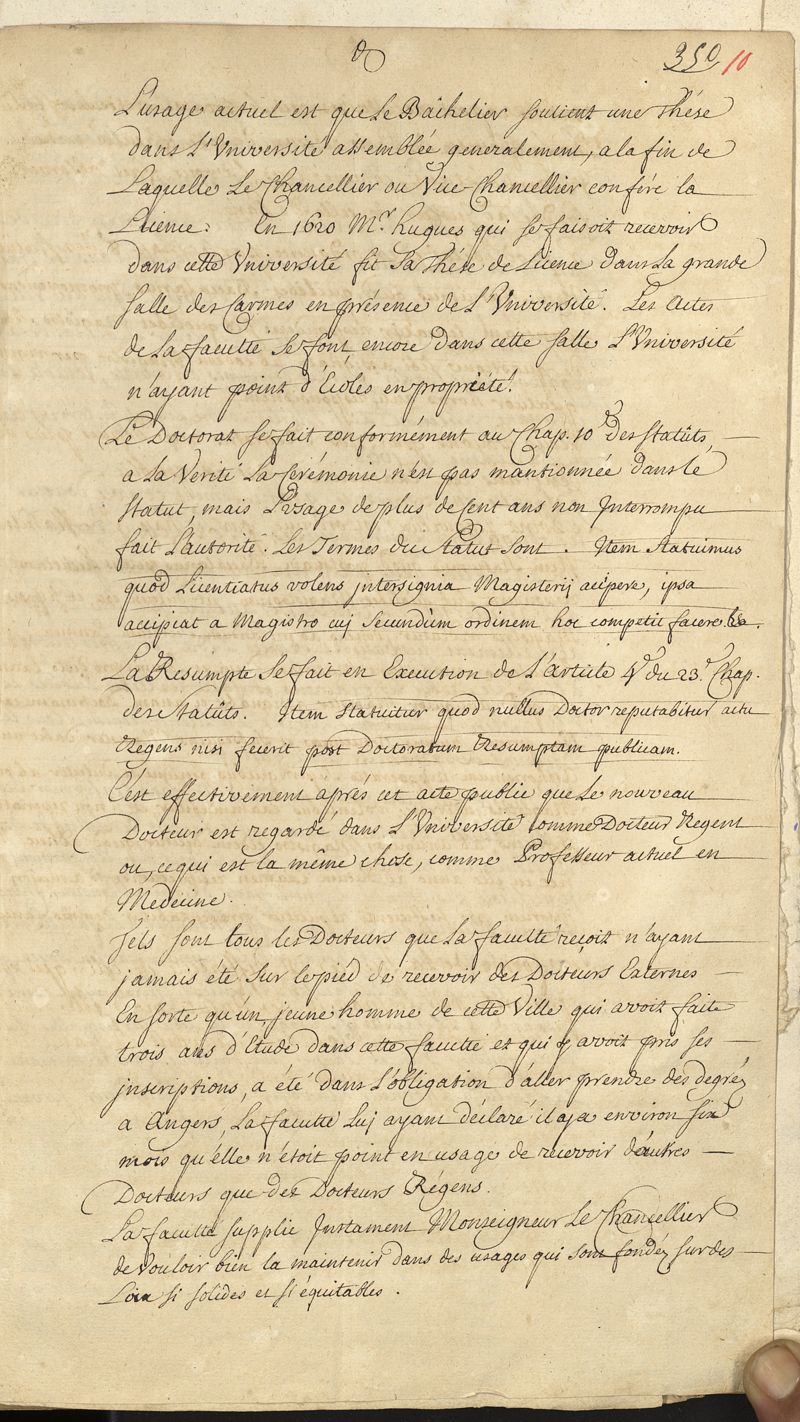 350 10
L'usage actuel est que Le Bachelier soutient une Thése
dans L'Université assemblée generalement, a la fin de
Laquelle Le Chancellier ou Vice-Chancellier confére la
Licence. En 1620 Mr. hugues qui se faisoit recevoir
dans cette Université fit Sa Thése de Licence dans La grande
Salle des Carmes en présence de L'Université. Les Actes
de La faculté Se font encore dans cette Salle L'Université
n'ayant point d'Ecoles en propriété.
Le Doctorat se fait conformément au Chap. 10e Des Statûts,
a La Verité La Cerémonie n'est pas mantionnée dans le
Statut, mais L'usage de plus de Cent ans non Interrompu
fait L'autorité. Les Termes du Statut Sont. Item Statuimus
quod Licentiatus volens jntersignia Magisterij accipere, ipsa
accipiat a Magistro cuj Secundùm ordinem hoc competit facere. &a.
La Resumpte Se fait en Execution de L'article 4e du 23e Chap.
des Statûts. Item Statuitur quod nullus Doctor reputabitur actu
Regens nisi fecerit post Doctoratum Resumptam publicam.
C'est effectivement aprés cet acte public que Le nouveau
Docteur est regardé dans L'Université comme Docteur Regent
ou, ce qui est la même chose, comme Professeur actuel en
Medecine.
Tels Sont tous les Docteurs que La faculté reçoit n'ayant
jamais été Sur le piéd de recevoir des Docteurs Externes
En sorte qu'un jeune homme de cette Ville qui avoit faite
trois ans d'Etude dans cette faculté et qui y avoit pris ses
jnscriptions, a été dans L'obligation d'aller prendre des degréz
a Angers, La faculté Luj ayant déclaré il a ja environ six
mois qu'élle n'étoit point en usage de recevoir d'autres
Docteurs que des Docteurs Régens.
La faculté supplie Justament Monseigneur Le Chancellier
de Vouloir bien la maintenir dans des usages qui sont fondéz sur des
Loix si solides et si équitables.